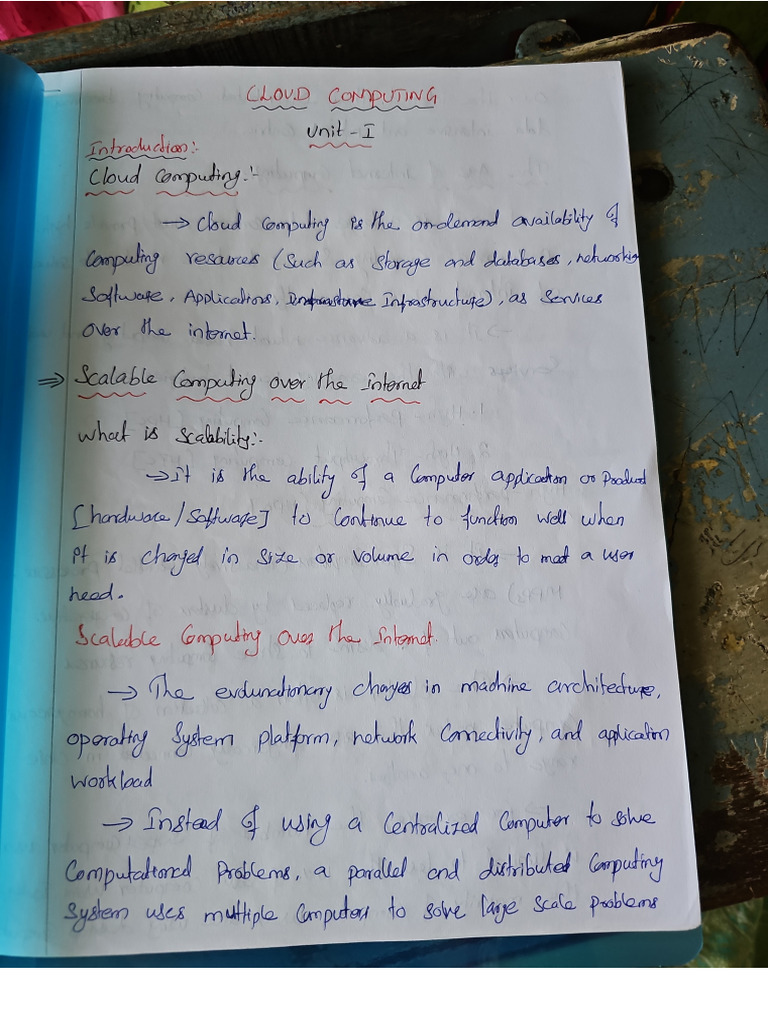 CLOUD COMPUTING
Unit - I
Introduction:-
Cloud Computing:-
→ Cloud Computing is the on-demand availability of
Computing resources (Such as Storage and databases, networking
Software, Applications, Infrastructure), as Services
over the internet.
⇒ Scalable Computing over the internet
What is Scalability:-
→ It is the ability of a Computer application or Product
[hardware/Software] to Continue to function well when
it is changed in Size or volume in order to meet a user
need.
Scaleable Computing Over the Internet.
→ The evolunationary changes in machine architecture,
operating System platform, network Connectivity, and application
workload
→ Instead of using a Centralized Computer to solve
Computational Problems, a parallel and distributed Computing
System uses multiple Computers to solve large Scale Problems